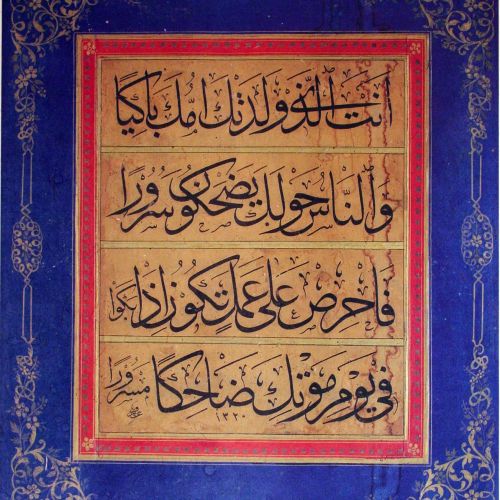 أنت الذي ولدتك امك باكيا
والناس حولك يضحكون سرورا
فاحرص على عمل تكون اذا بكوا
في يوم موتك ضاحكا مسرورا
١٣٢٠